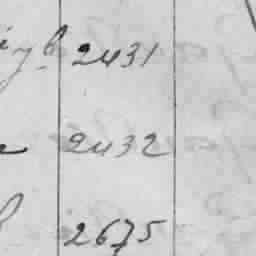 2431
2432
2675